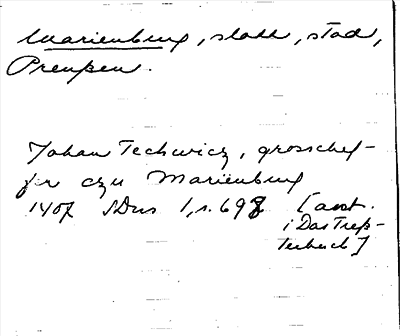 Marienburg, slott, stad,
Preußen.
Johan Techwicz, grosschef-
fer czu Marienburg
1407 SDns 1, s. 698 [ant.
i Das Treß-
lerbuch]